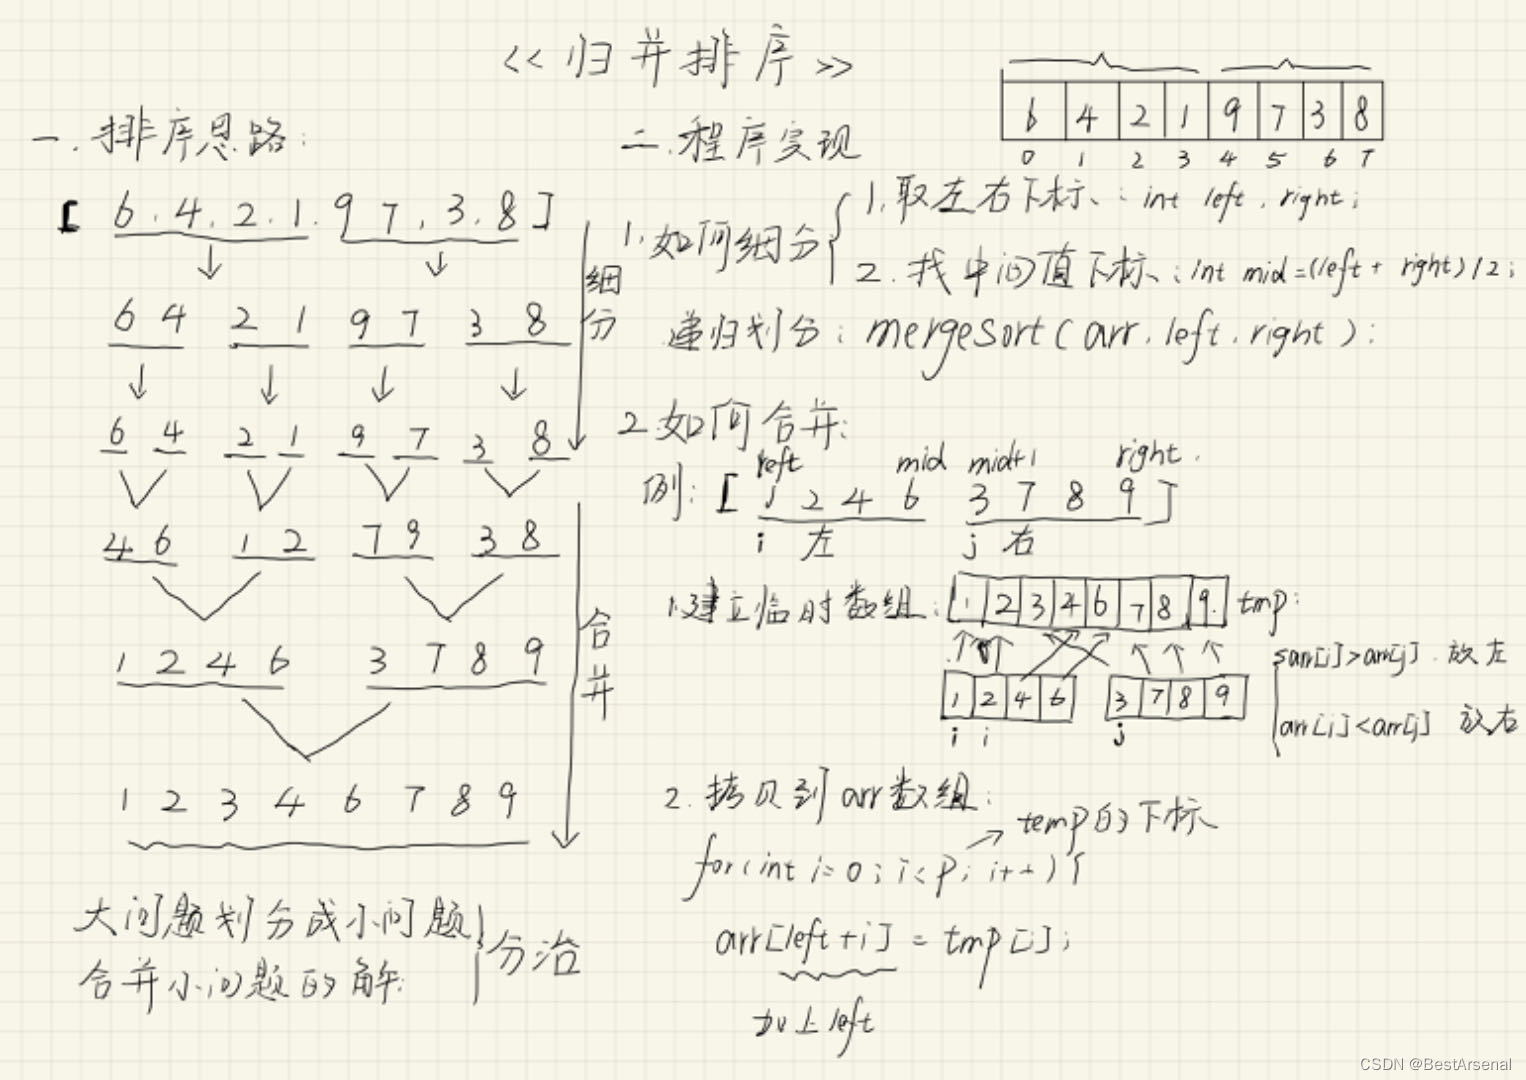 <<归并排序>>
一.排序思路:
[ 6.4.2.1.9 7.3.8 ]
6 4 2 1 9 7 3 8
6 4 2 1 9 7 3 8
细分
4 6 1 2 7 9 3 8
1 2 4 6 3 7 8 9
1 2 3 4 6 7 8 9
合并
大问题划分成小问题
合并小问题的解.
分治
二.程序实现
6 4 2 1 9 7 3 8
0 1 2 3 4 5 6 7
1.如何细分
1.取左右下标、: int left, right;
2.找中间值下标、: int mid=(left + right)/2;
递归划分: mergeSort(arr.left.right):
2.如何合并:
left mid mid+1 right.
例: [ 1 2 4 6 3 7 8 9 ]
i 左 j 右
1.建立临时数组: 1 2 3 4 6 7 8 9. tmp:
1 2 4 6 3 7 8 9
i i j
arr[i]>arr[j]. 放左
arr[i]<arr[j] 放右
2.拷贝到arr数组:
temp的下标
for(int i=0; i<p; i++){
arr[left+i] = tmp[i];
加上left
CSDN @BestArsenal